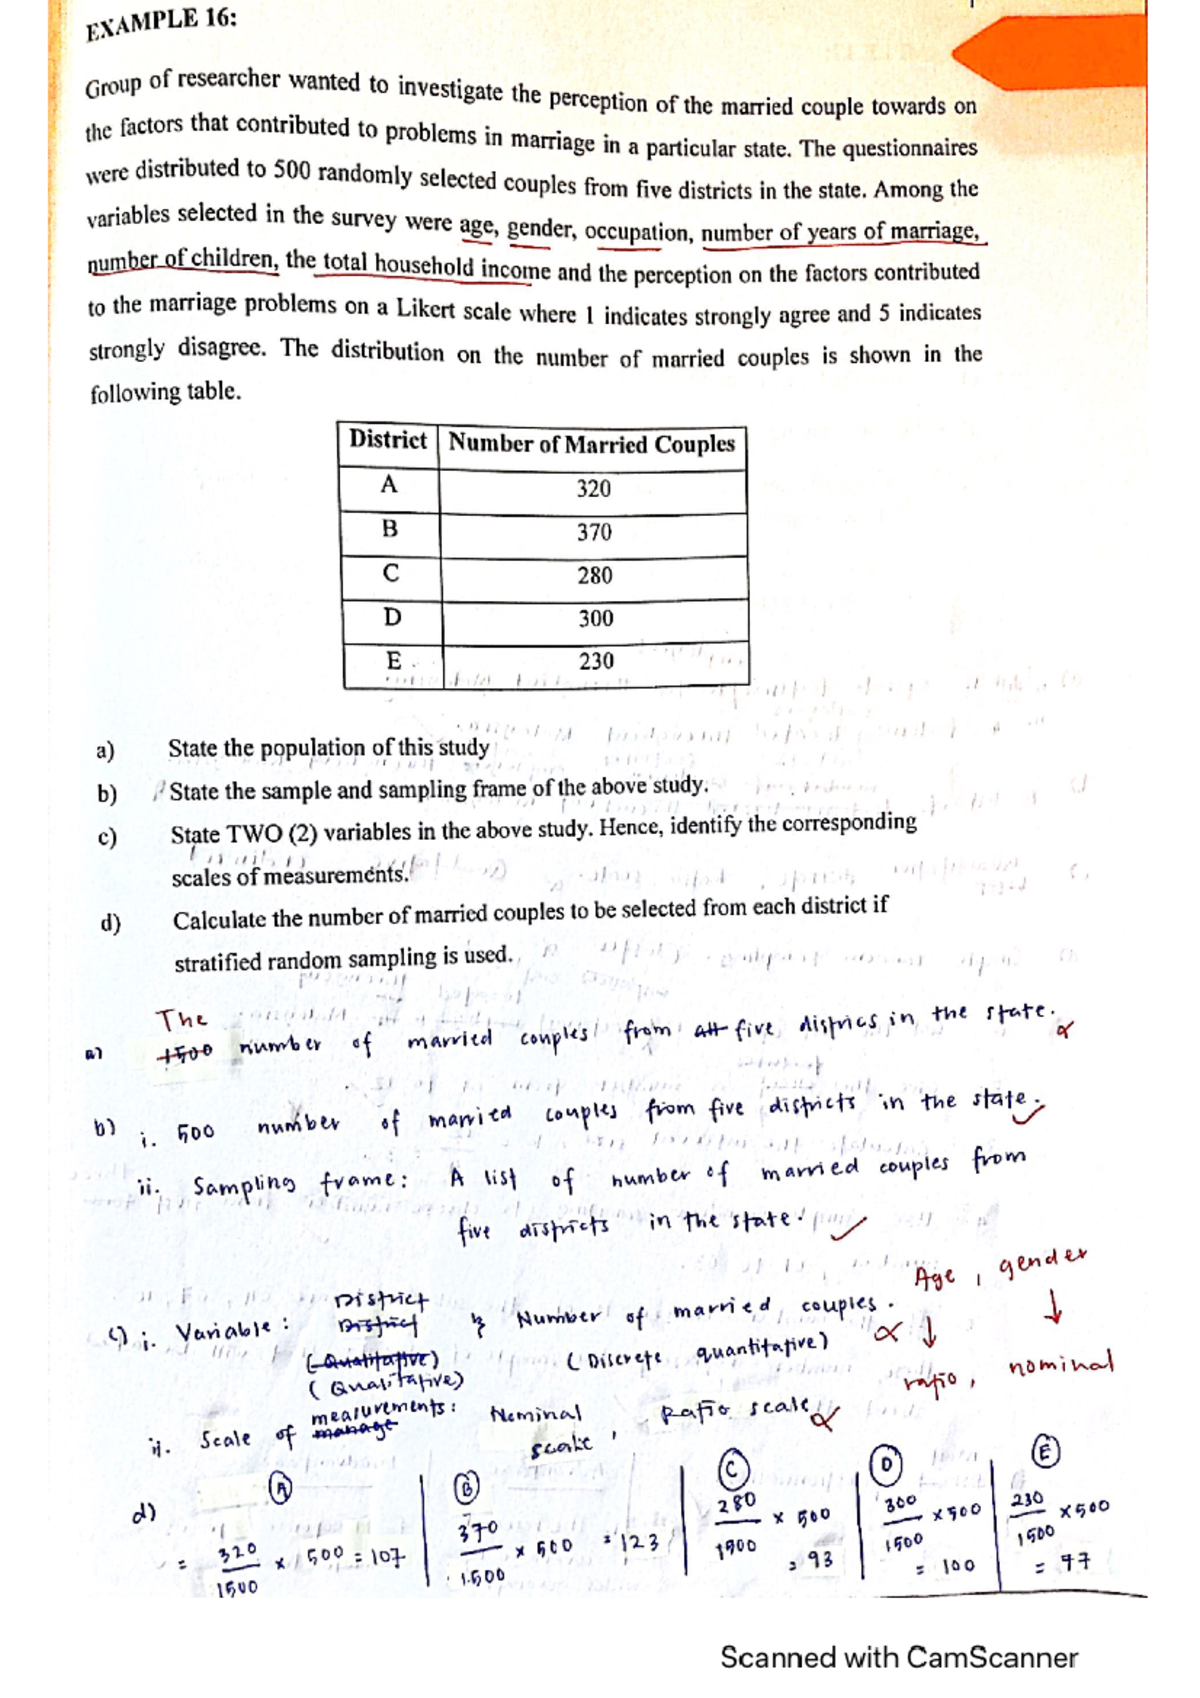 EXAMPLE 16:
Group of researcher wanted to investigate the perception of the married couple towards on
the factors that contributed to problems in marriage in a particular state. The questionnaires
were distributed to 500 randomly selected couples from five districts in the state. Among the
variables selected in the survey were age, gender, occupation, number of years of marriage,
number of children, the total household income and the perception on the factors contributed
to the marriage problems on a Likert scale where 1 indicates strongly agree and 5 indicates
strongly disagree. The distribution on the number of married couples is shown in the
following table.
District Number of Married Couples
A 320
B 370
C 280
D 300
E 230
a) State the population of this study
b) State the sample and sampling frame of the above study.
c) State TWO (2) variables in the above study. Hence, identify the corresponding
scales of measurements.
d) Calculate the number of married couples to be selected from each district if
stratified random sampling is used.
The
a) 1500 number of married couples from all five districs in the state.
b) i. 500 number of married couples from five districts in the state.
ii. Sampling frame: A list of number of married couples from
five districts in the state.
Age, gender
District
c) i. Variable: District & Number of married couples.
(Qualitative) (Discrete quantitative)
(Qualitative)
ratio, nominal
measurements:
ii. Scale of manage Nominal scale, Ratio scale
d) A B C D E
= 320/1500 x 500 = 107 370/1500 x 500 = 123 280/1500 x 500 = 93 300/1500 x 500 = 100 230/1500 x 500 = 77
Scanned with CamScanner